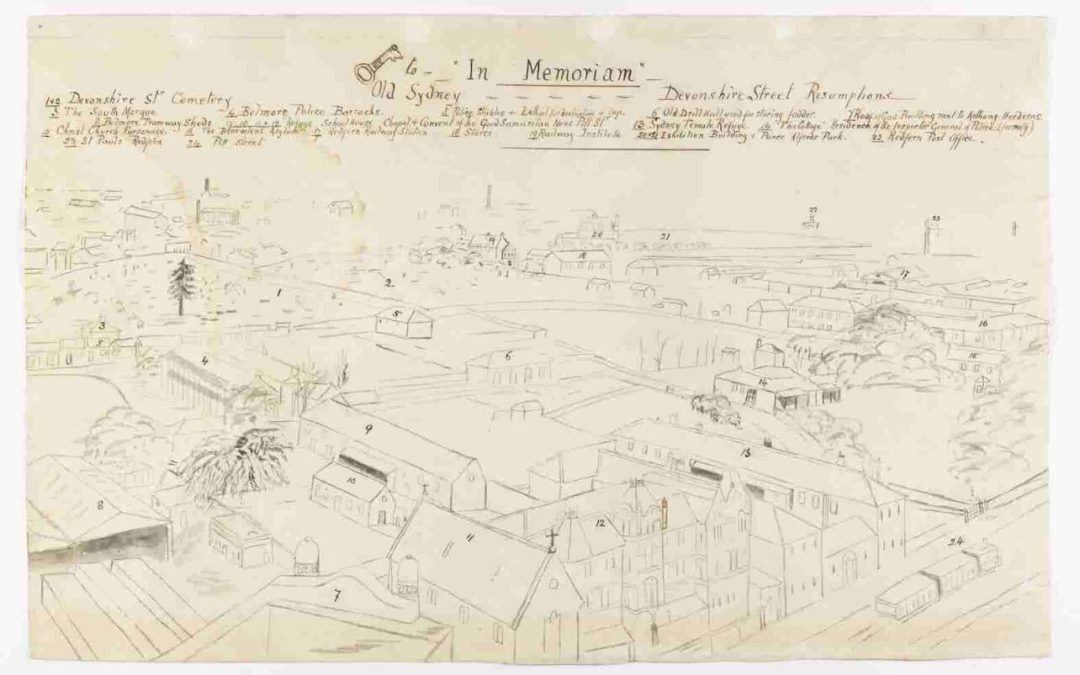 to - "In Memoriam" -
Old Sydney Devonshire Street Resumptions
1&2 Devonshire St Cemetery
3 The South Morgue 4 Belmore Police Barracks 5 Police Stables & Lethal for destruction of 6 Old Drill Hall used for storing fodder. 7 Roof of Gas Building next to Anthony Horderns.
8 Belmore Tramway Sheds 9 10 11 12 Refuge Schoolhouse Chapel & Convent of the Good Samaritan Nuns Pitt St 13 Sydney Female Refuge 14 The Cottage Residence of the Inspector General of Police (formerly)
15 Christ Church Parsonage. 16 The Benevolent Asylum 17 Redfern Railway Station 18 Stores 19 Railway Institute 20 & 21 Exhibition Building & Prince Alfred Park. 22 Redfern Post Office.
23 St Pauls Redfern 24 Pitt Street
22
23
20
21
19
18
17
2
1
5
16
3
5
4
6
15
14
9
13
10
8
12
11
24
7